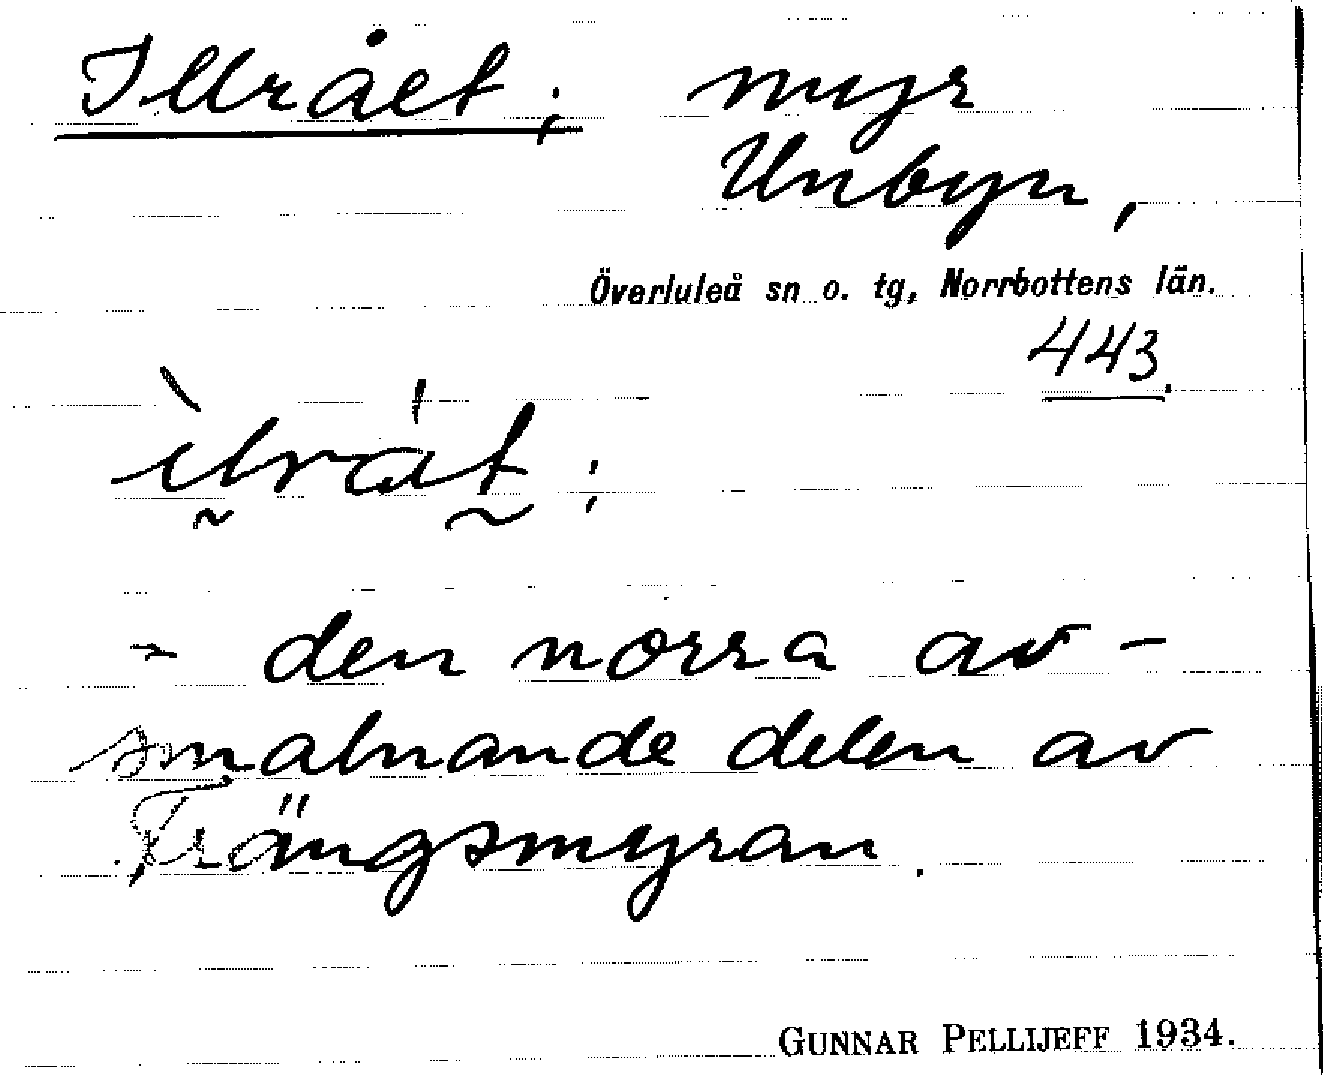 Illrået; myr
Unbyn,
Överluleå sn o. tg, Norrbottens län.
443.
ìlråt:
- den norra av-
smalnande delen av
Trångsmyran.
GUNNAR PELLIJEFF 1934.